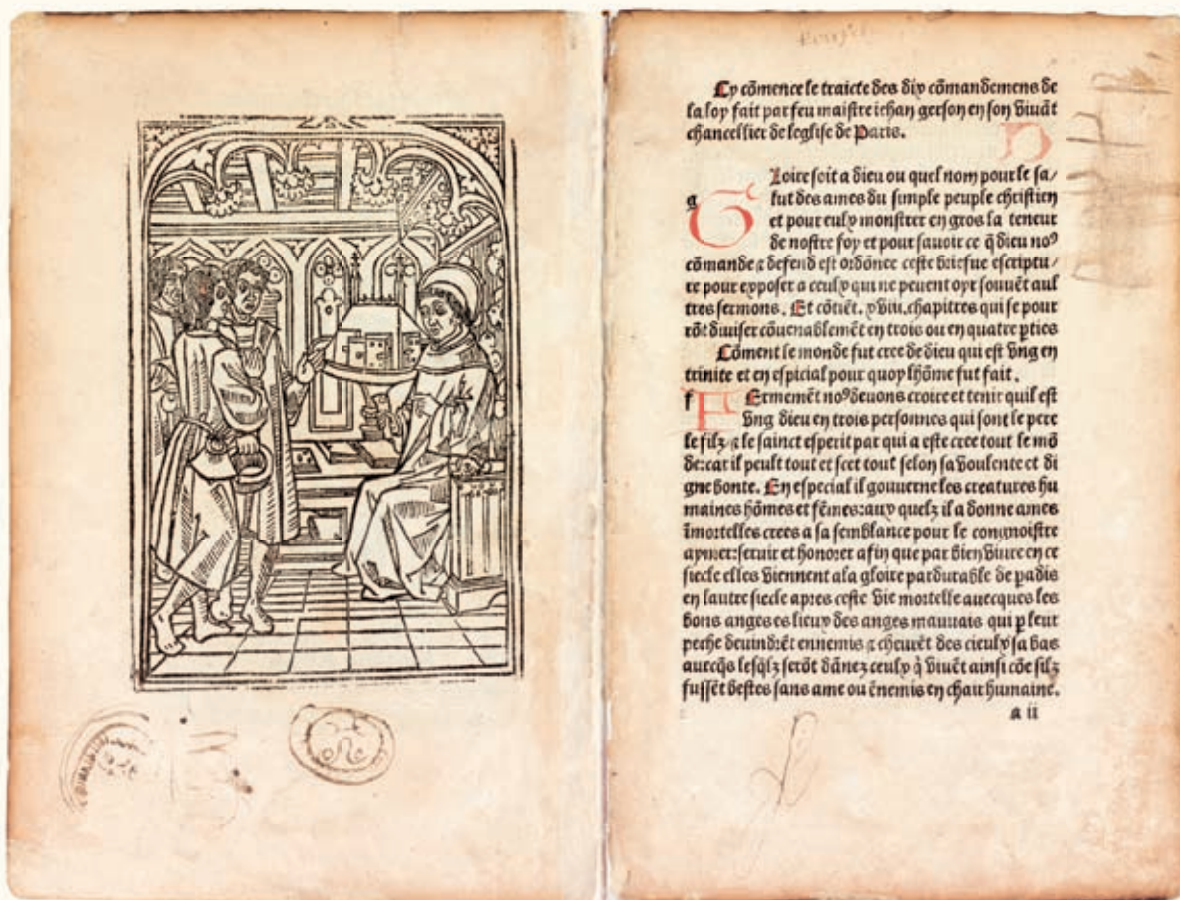 Cy cõmence le traicte des dix cõmandemens de
la loy fait par feu maistre iehan gerson en son viuãt
chancellier de leglise de Paris.
g
G Loire soit a dieu ou quel nom pour le sa/
lut des ames du simple peuple christien
et pour eulx monstrer en gros la teneur
de nostre foy et pour sauoir ce q̃ dieu noꝰ
cõmande ⁊ defend est ordõnee ceste briefue escriptu/
re pour exposer a ceulx qui ne peuent oyr souuẽt aul
tres sermons. Et cõtiẽt. xviii. chapitres qui se pour
rõt diuiser cõuenablemẽt en trois ou en quatre pties
Cõment le monde fut cree de dieu qui est vng en
trinite et en espicial pour quoy lhõme fut fait.
f
F Ermemẽt noꝰ deuons croire et tenir quil est
vng dieu en trois personnes qui sont le pere
le filz ⁊ le sainct esperit par qui a este cree tout le mõ
de: car il peult tout et scet tout selon sa voulente et di
gne bonte. En especial il gouuerne les creatures hu
maines hõmes et fẽmes: aux quelz il a donne ames
ĩmortelles crees a sa semblance pour le congnoistre
aymer: seruir et honorer afin que par bien viure en ce
siecle elles viennent a la gloire pardurable de padis
en lautre siecle apres ceste vie mortelle auecques les
bons anges es lieux des anges mauuais qui p leur
peche deuindrẽt ennemis ⁊ cheurẽt des cieulx sa bas
auecq̃s lesq̃lz serõt dãnez ceulx q̃ viuẽt ainsi cõe silz
fussẽt bestes sans ame ou ẽnemis en chair humaine.
a ii